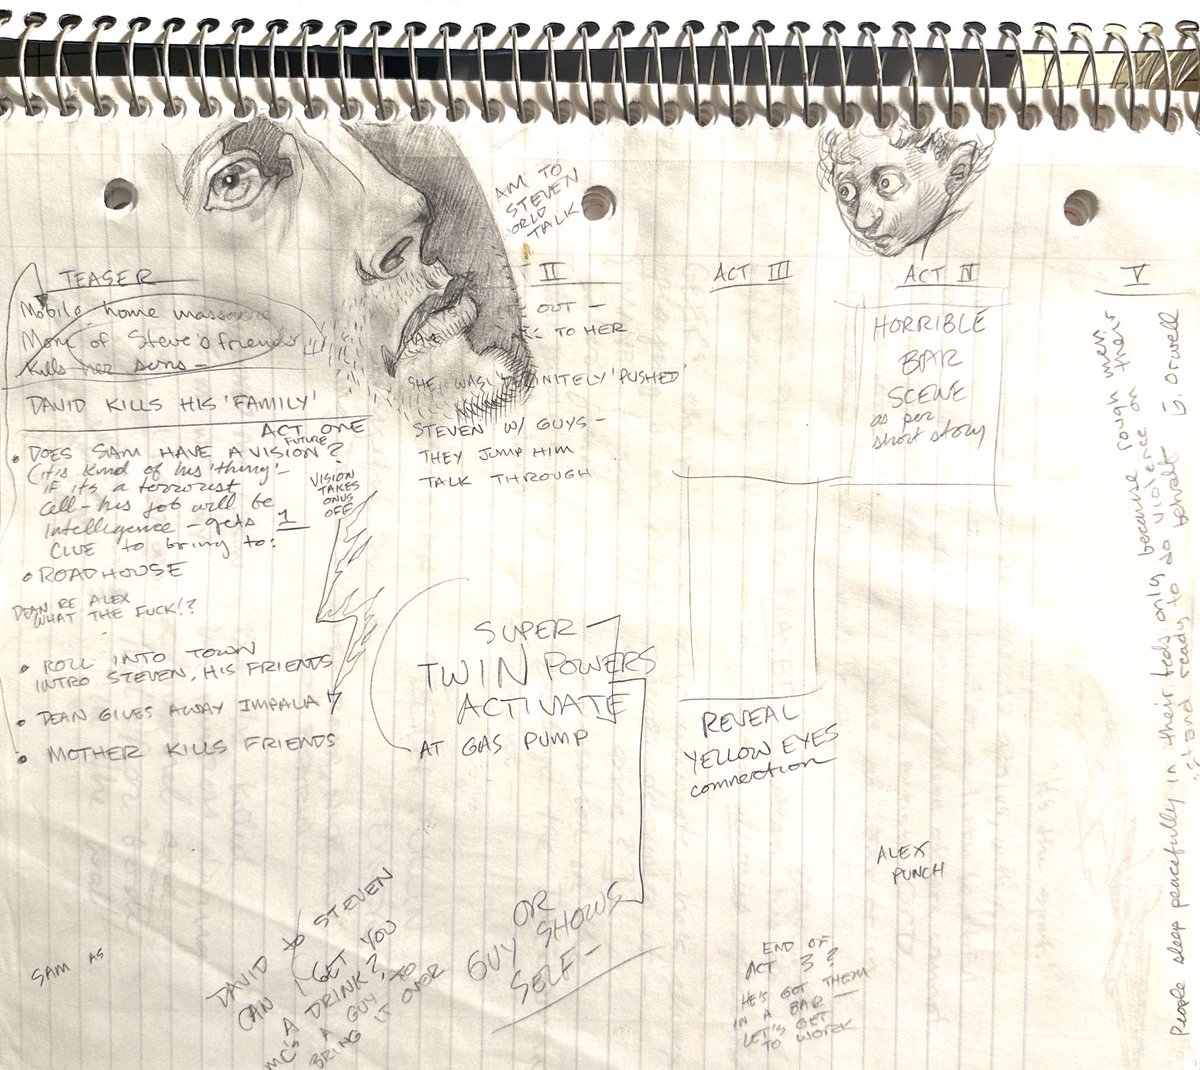 TEASER
Mobile home massacre
Mom of Steve's friends
kills her sons —
DAVID KILLS HIS 'FAMILY'
ACT ONE
• DOES SAM HAVE A FUTURE VISION?
(it's kind of his 'thing' –
if it's a terrorist
cell – his job will be
intelligence – gets 1
CLUE to bring to:
VISION
TAKES
ONUS
OFF
• ROADHOUSE
DEAN RE ALEX
WHAT THE FUCK!?
• ROLL INTO TOWN
INTRO STEVEN, HIS FRIENDS
• DEAN GIVES AWAY IMPALA
• MOTHER KILLS FRIENDS
SAM AS
AM TO
STEVEN
ORLD
TALK
II
OUT —
TO HER
SHE WAS DEFINITELY 'PUSHED'
STEVEN W/ GUYS —
THEY JUMP HIM
TALK THROUGH
SUPER
TWIN POWERS
ACTIVATE
AT GAS PUMP
OR
GUY SHOWS
SELF —
DAVID to STEVEN
CAN I GET YOU
A DRINK?,
MC'S A GUY TO
BRING IT OVER
ACT III
REVEAL
YELLOW EYES
connection
END OF
ACT 3?
HE'S GOT THEM
IN A BAR —
LET'S GET
TO WORK
ACT IV
HORRIBLE
BAR
SCENE
as per
short story
ALEX
PUNCH
V
People sleep peacefully in their beds only because rough men
stand ready to do violence on their
behalf G. Orwell